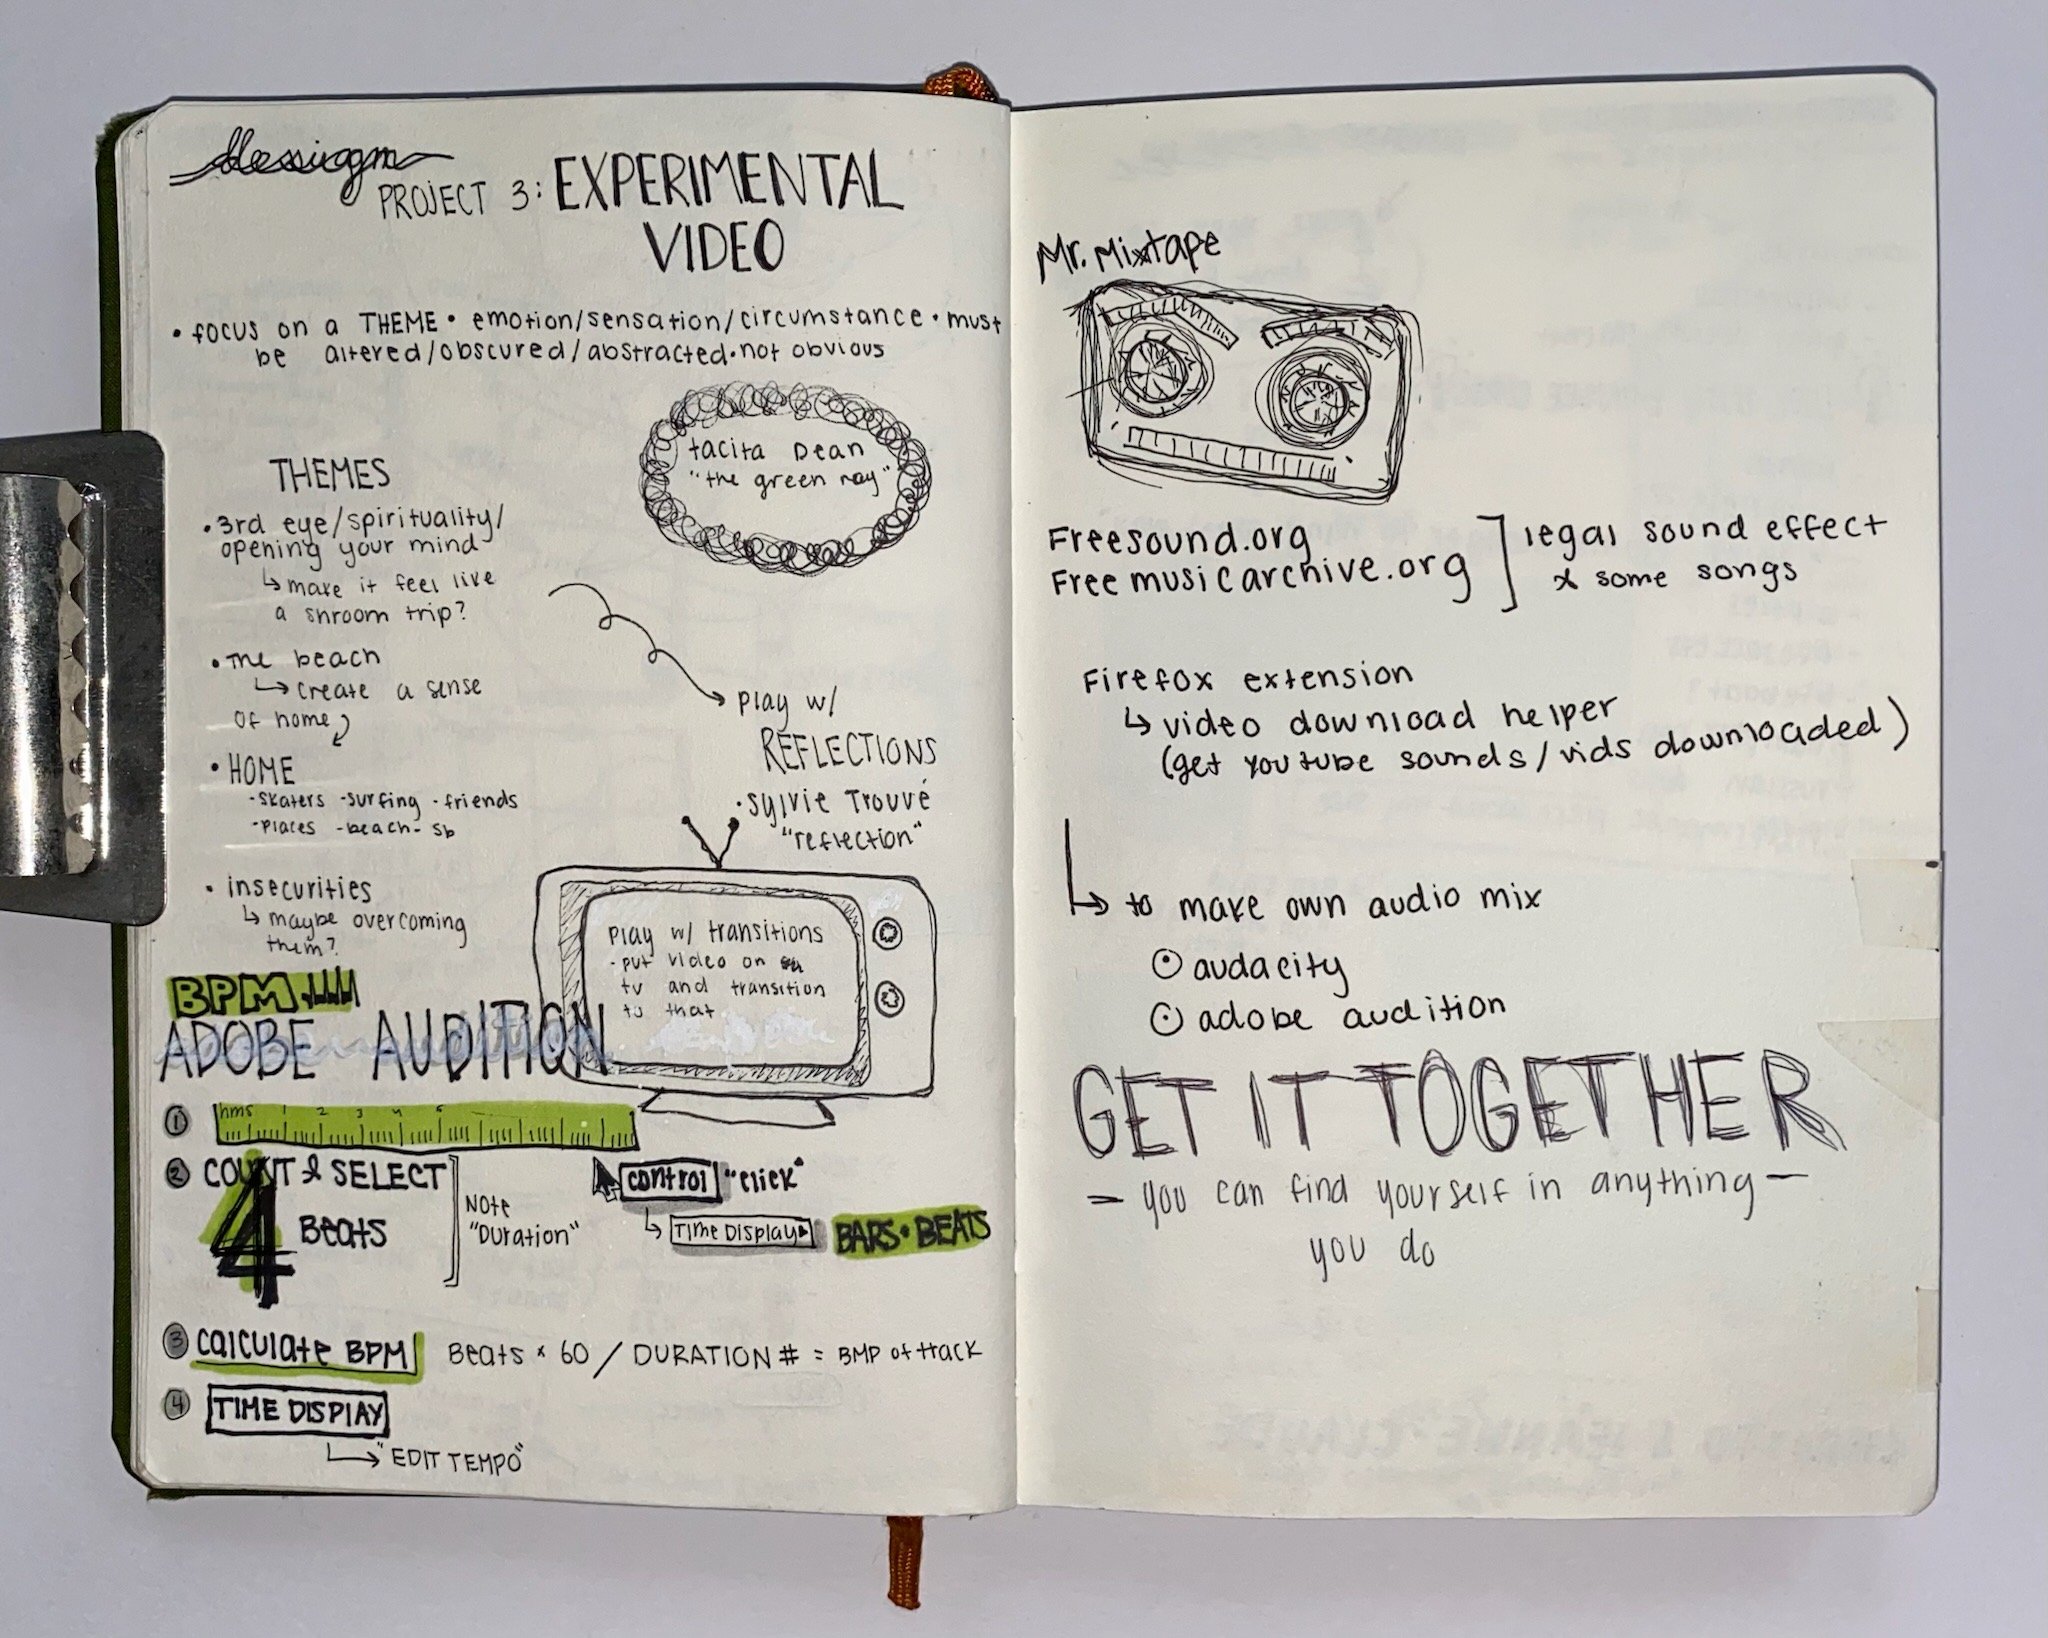 PROJECT 3: EXPERIMENTAL
VIDEO
• focus on a THEME • emotion/sensation/circumstance • must
be altered/obscured/abstracted • not obvious
tacita Dean
"the green ray"
THEMES
• 3rd eye/spirituality/
opening your mind
↳ make it feel like
a shroom trip?
• The beach
↳ create a sense
of home
• HOME
-skaters -surfing -friends
-places -beach- sb
• insecurities
↳ maybe overcoming
them?
play w/
REFLECTIONS
• Sylvie Trouvé
"reflection"
play w/ transitions
-put video on
tv and transition
to that
BPM
ADOBE AUDITION
① hms 1 2 3 4 5
② COUNT & SELECT
4 Beats
Note
"Duration"
control "click"
↳ Time Display▸ BARS • BEATS
③ Calculate BPM Beats × 60 / DURATION # = BMP of track
④ TIME DISPLAY
↳ "EDIT TEMPO"
Mr. Mixtape
Freesound.org
Freemusicarchive.org
legal sound effect
x some songs
Firefox extension
↳ video download helper
(get youtube sounds/vids downloaded)
↳ to make own audio mix
⊙ audacity
⊙ adobe audition
GET IT TOGETHER
– you can find yourself in anything –
you do